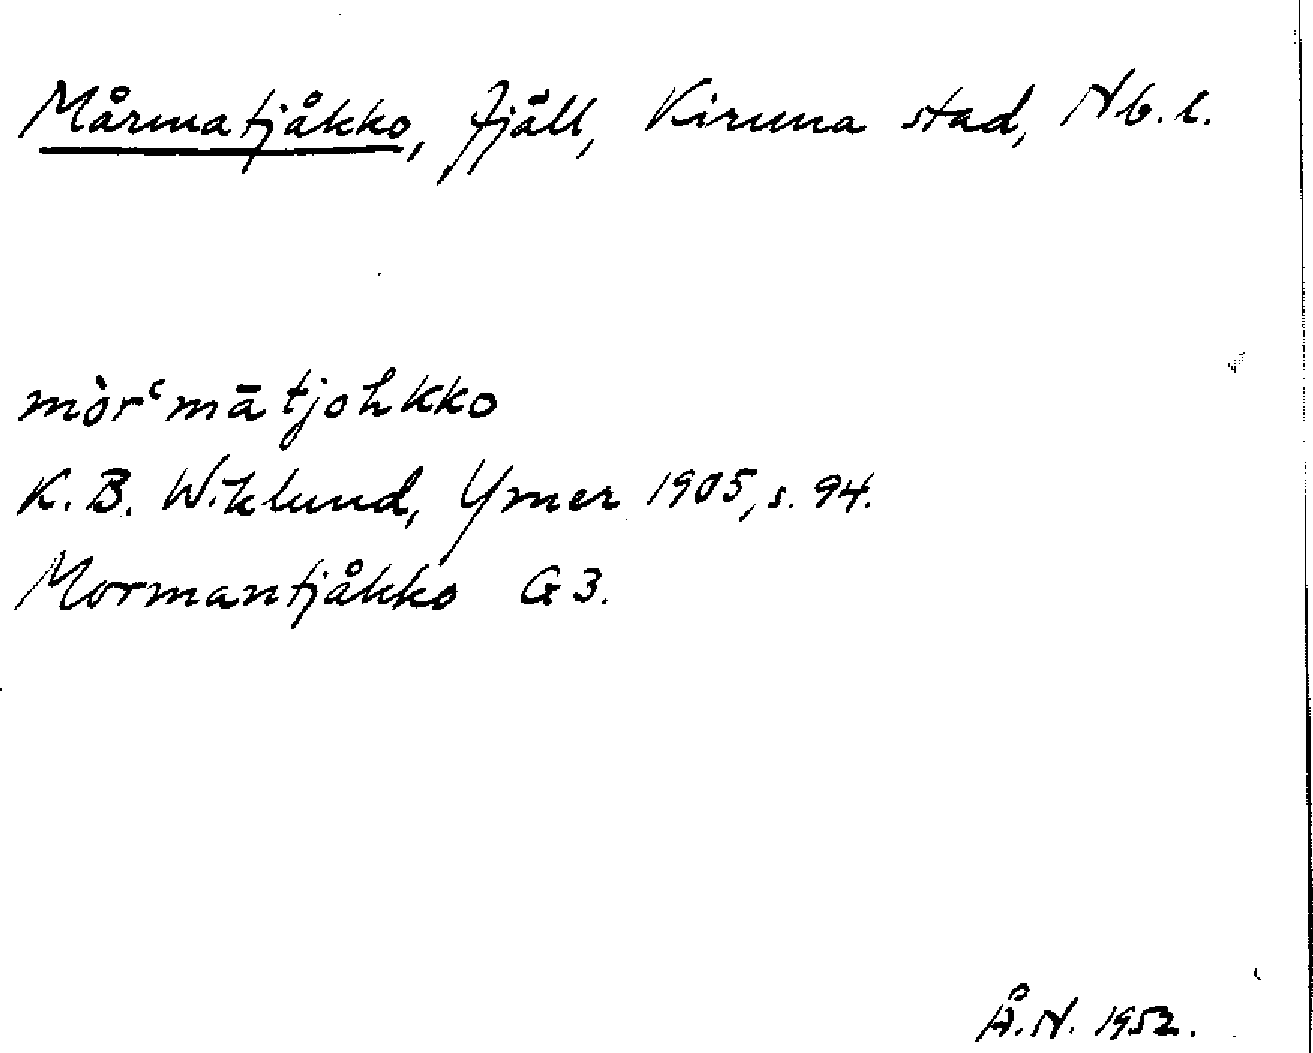 Mårmatjåkko, fjäll, Kiruna stad, Nb. l.
mòrʿmātjohkko
K. B. Wiklund, Ymer 1905, s. 94.
Mormantjåkko G 3.
Å. N. 1952.